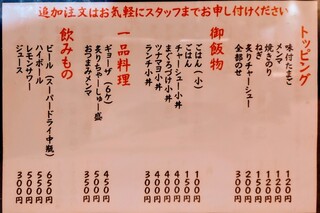 追加注文はお気軽にスタッフまでお申し付けください
トッピング
味付たまご 120円
メンマ 120円
焼きのり 120円
ねぎ 150円
炙りチャーシュー 200円
全部のせ 300円
御飯物
ごはん(小) 100円
ごはん 150円
チャーシュー小丼 400円
まぐろづけ小丼 400円
ツナマヨ小丼 300円
ランチ小丼
一品料理
ギョーザ(6ケ) 450円
炙りちゃーしゅー盛 500円
おつまみメンマ 350円
飲みもの
ビール(スーパードライ中瓶) 650円
ハイボール 500円
レモンサワー 500円
ジュース 300円